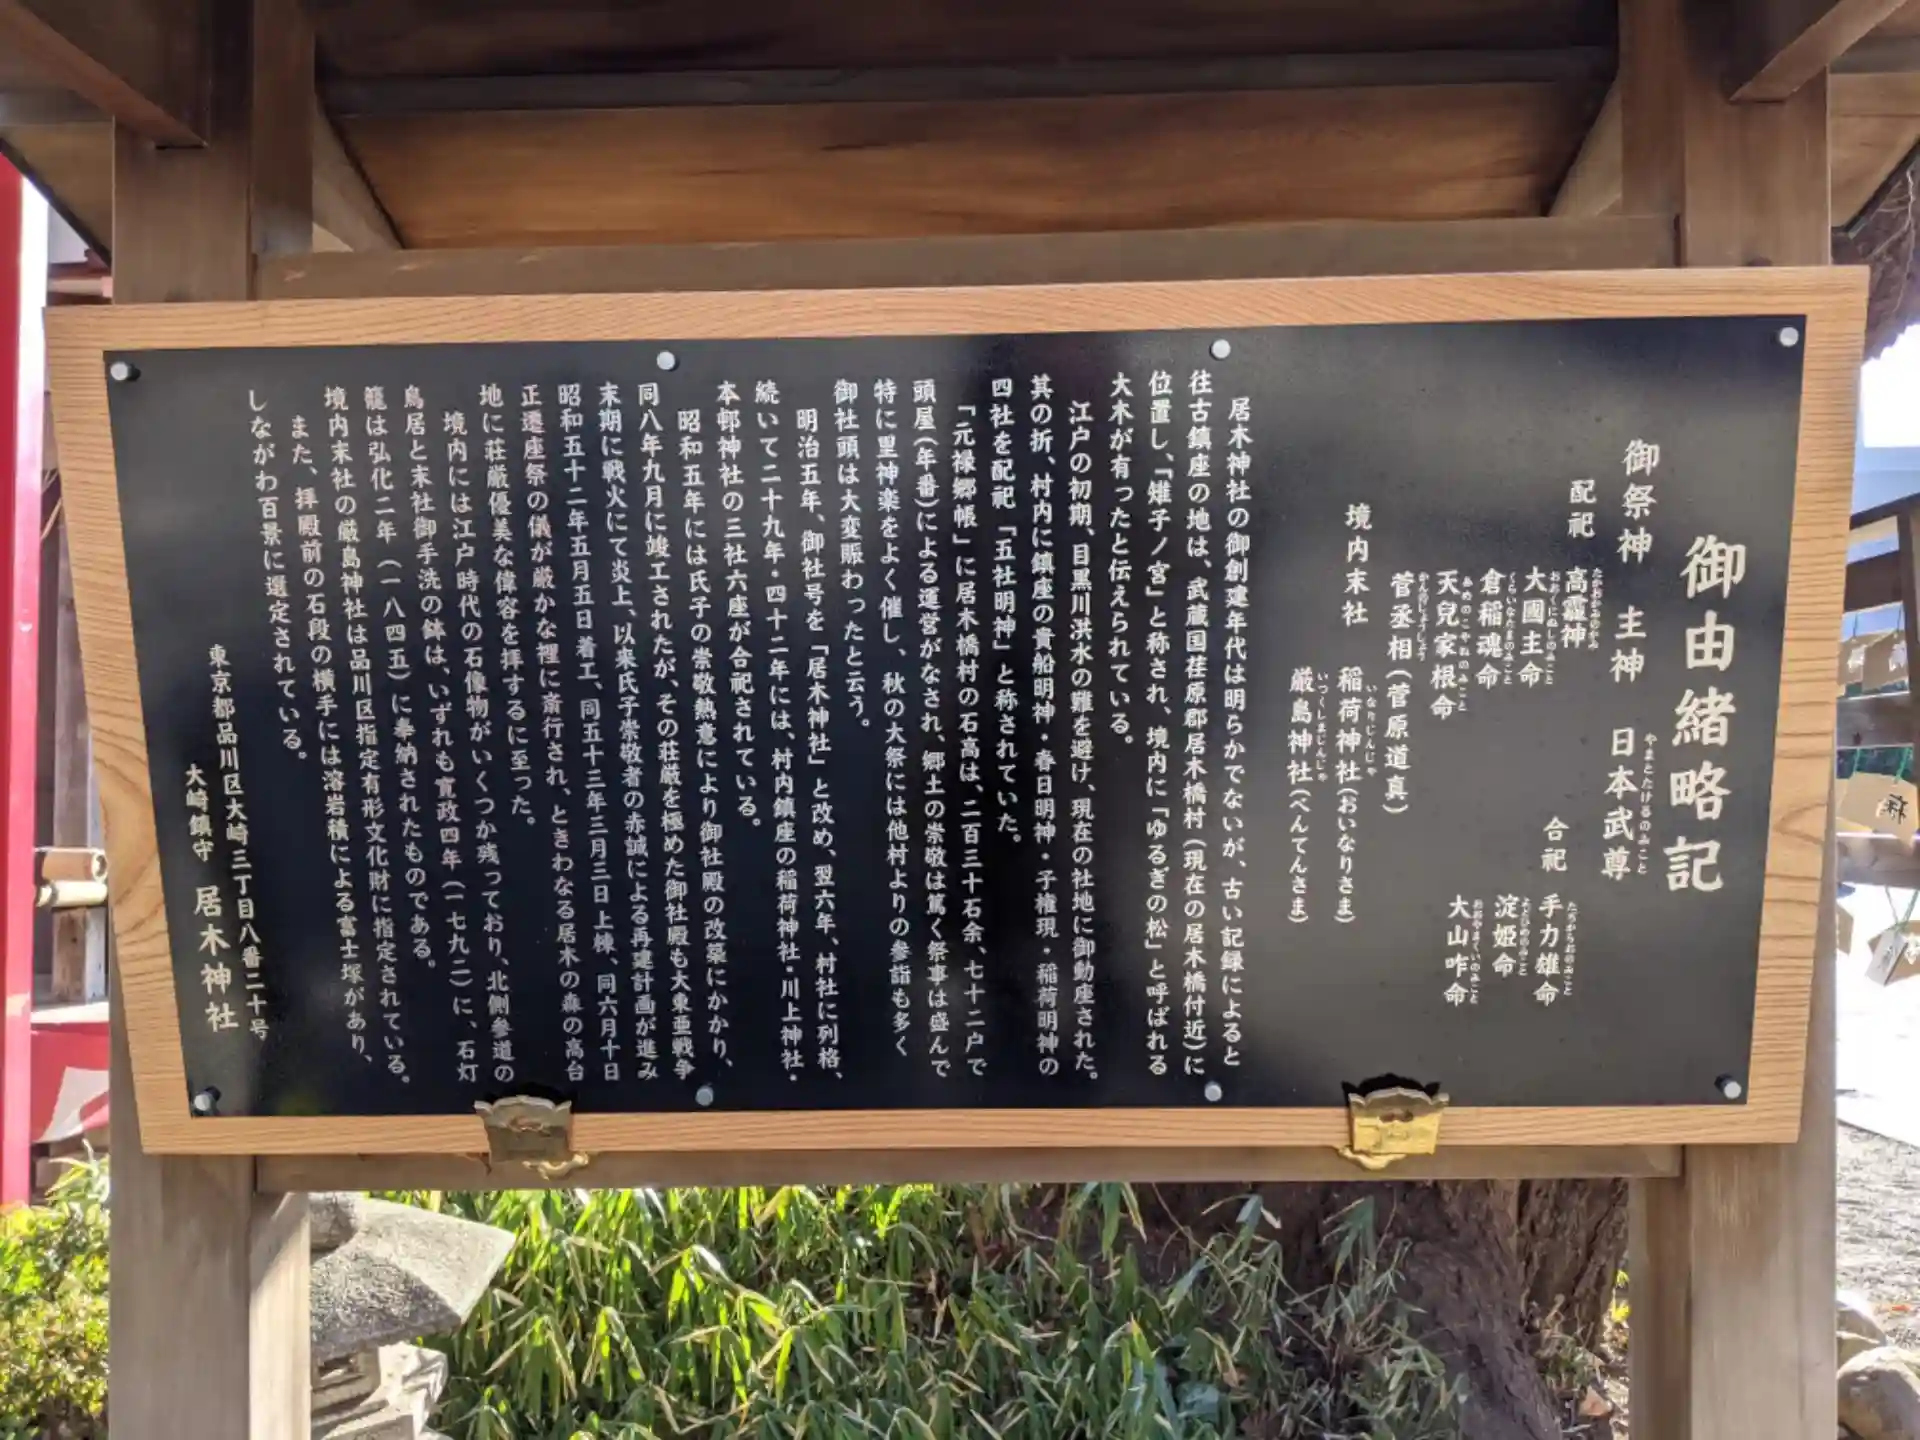 御由緒略記
御祭神 主神 日本武尊
やまとたけるのみこと
配祀 高龗神
たかおかみのかみ
大國主命
おおくにぬしのみこと
倉稲魂命
くらいなたまのみこと
天兒家根命
あめのこやねのみこと
菅丞相(菅原道真)
かんしょうじょう
合祀 手力雄命
たぢからおのみこと
淀姫命
よどひめのみこと
大山咋命
おおやまくいのみこと
境内末社 稲荷神社(おいなりさま)
いなりじんじゃ
厳島神社(べんてんさま)
いつくしまじんじゃ
居木神社の御創建年代は明らかでないが、古い記録によると
往古鎮座の地は、武蔵国荏原郡居木橋村(現在の居木橋付近)に
位置し、「雉子ノ宮」と称され、境内に「ゆるぎの松」と呼ばれる
大木が有ったと伝えられている。
江戸の初期、目黒川洪水の難を避け、現在の社地に御動座された。
其の折、村内に鎮座の貴船明神・春日明神・子権現・稲荷明神の
四社を配祀「五社明神」と称されていた。
「元禄郷帳」に居木橋村の石高は、二百三十石余、七十二戸で
頭屋(年番)による運営がなされ、郷土の崇敬は篤く祭事は盛んで
特に里神楽をよく催し、秋の大祭には他村よりの参詣も多く
御社頭は大変賑わったと云う。
明治五年、御社号を「居木神社」と改め、翌六年、村社に列格、
続いて二十九年・四十二年には、村内鎮座の稲荷神社・川上神社・
本邨神社の三社六座が合祀されている。
昭和五年には氏子の崇敬熱意により御社殿の改築にかかり、
同八年九月に竣工されたが、その荘厳を極めた御社殿も大東亜戦争
末期に戦火にて炎上、以来氏子崇敬者の赤誠による再建計画が進み
昭和五十二年五月五日着工、同五十三年三月三日上棟、同六月十日
正遷座祭の儀が厳かな裡に斎行され、ときわなる居木の森の高台
地に荘厳優美な偉容を拝するに至った。
境内には江戸時代の石像物がいくつか残っており、北側参道の
鳥居と末社御手洗の鉢は、いずれも寛政四年(一七九二)に、石灯
籠は弘化二年(一八四五)に奉納されたものである。
境内末社の厳島神社は品川区指定有形文化財に指定されている。
また、拝殿前の石段の横手には溶岩積による富士塚があり、
しながわ百景に選定されている。
東京都品川区大崎三丁目八番二十号
大崎鎮守 居木神社